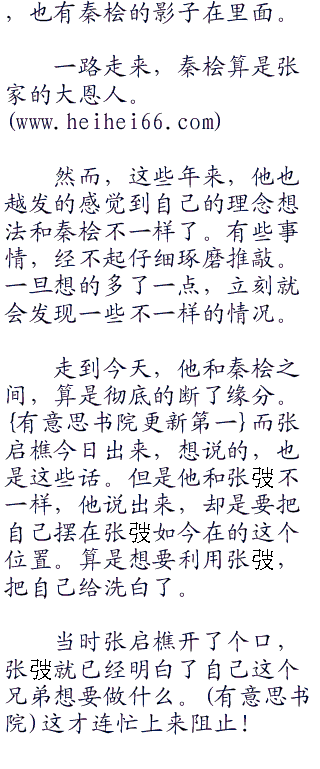 ，也有秦桧的影子在里面。
一路走来，秦桧算是张
家的大恩人。
(www.heihei66.com)
然而，这些年来，他也
越发的感觉到自己的理念想
法和秦桧不一样了。有些事
情，经不起仔细琢磨推敲。
一旦想的多了一点，立刻就
会发现一些不一样的情况。
走到今天，他和秦桧之
间，算是彻底的断了缘分。
{有意思书院更新第一}而张
启樵今日出来，想说的，也
是这些话。但是他和张弢不
一样，他说出来，却是要把
自己摆在张弢如今在的这个
位置。算是想要利用张弢，
把自己给洗白了。
当时张启樵开了个口，
张弢就已经明白了自己这个
兄弟想要做什么。(有意思书
院)这才连忙上来阻止！